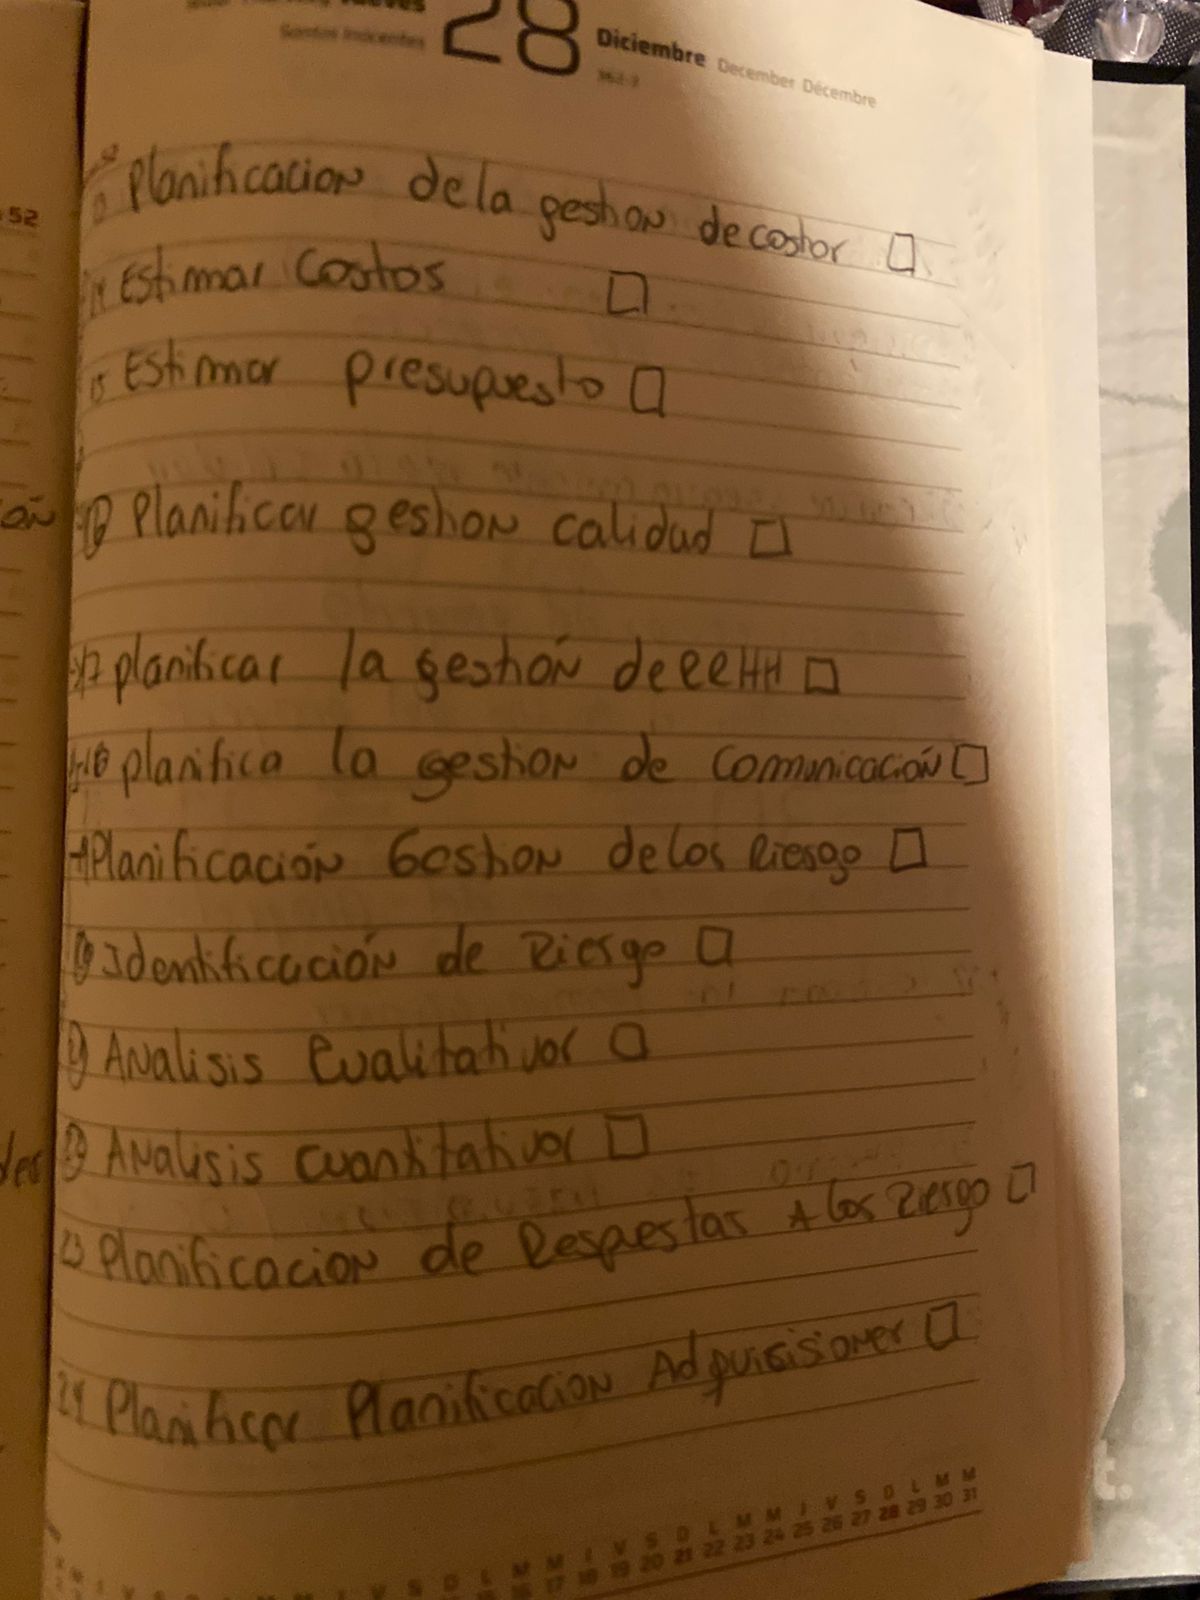 Jueves 28 Diciembre December Décembre
Santos Inocentes 362-3
52
Planificacion de la gestion de costos
14 Estimar Costos
15 Estimar presupuesto
ón
16 Planificar gestion calidad
17 planificar la gestión de RRHH
18 planifica la gestion de Comunicación
Planificación Gestion de los Riesgo
Identificación de Riesgo
21 Analisis Cualitativos
22 Analisis cuantitativos
des
23 Planificacion de Respuestas A los Riesgo
24 Planificar Planificacion Adquisisiones
M M J V S D L M M J V S D L M M
16 17 18 19 20 21 22 23 24 25 26 27 28 29 30 31